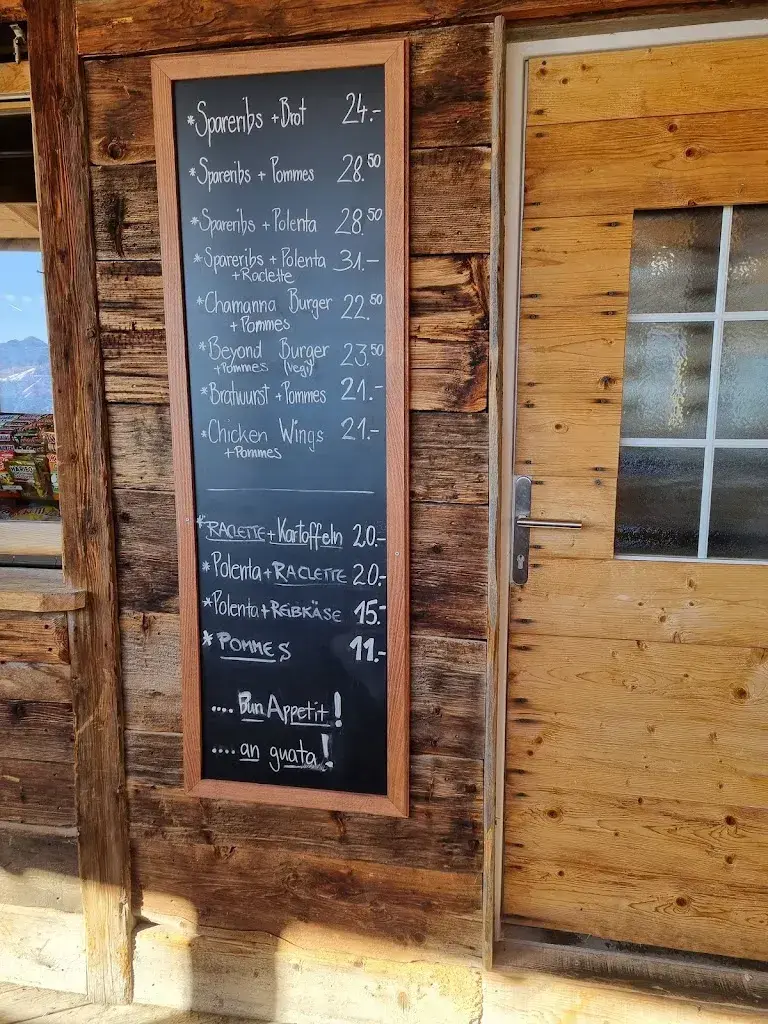 *Spareribs + Brot 24.-
*Spareribs + Pommes 28.50
*Spareribs + Polenta 28.50
*Spareribs + Polenta 31.-
+Raclette
*Chamanna Burger 22.50
+ Pommes
*Beyond Burger 23.50
+Pommes (vegi)
*Bratwurst + Pommes 21.-
*Chicken Wings 21.-
+Pommes
*RACLETTE + Kartoffeln 20.-
*Polenta + RACLETTE 20.-
*Polenta + REIBKÄSE 15.-
*POMMES 11.-
.... Bun Appetit!
.... an guata!
HARIBO